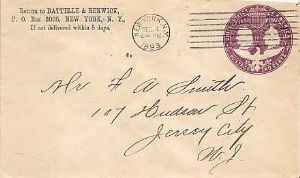 Return to BATTELLE & RENWICK,
P. O. Box 2006, NEW YORK, N. Y.,
If not delivered within 5 days.
NEW YORK, N.Y.
DEC 4
PM
1893
Mr. F. A. Smith
107 Hudson St
Jersey City
N. J.